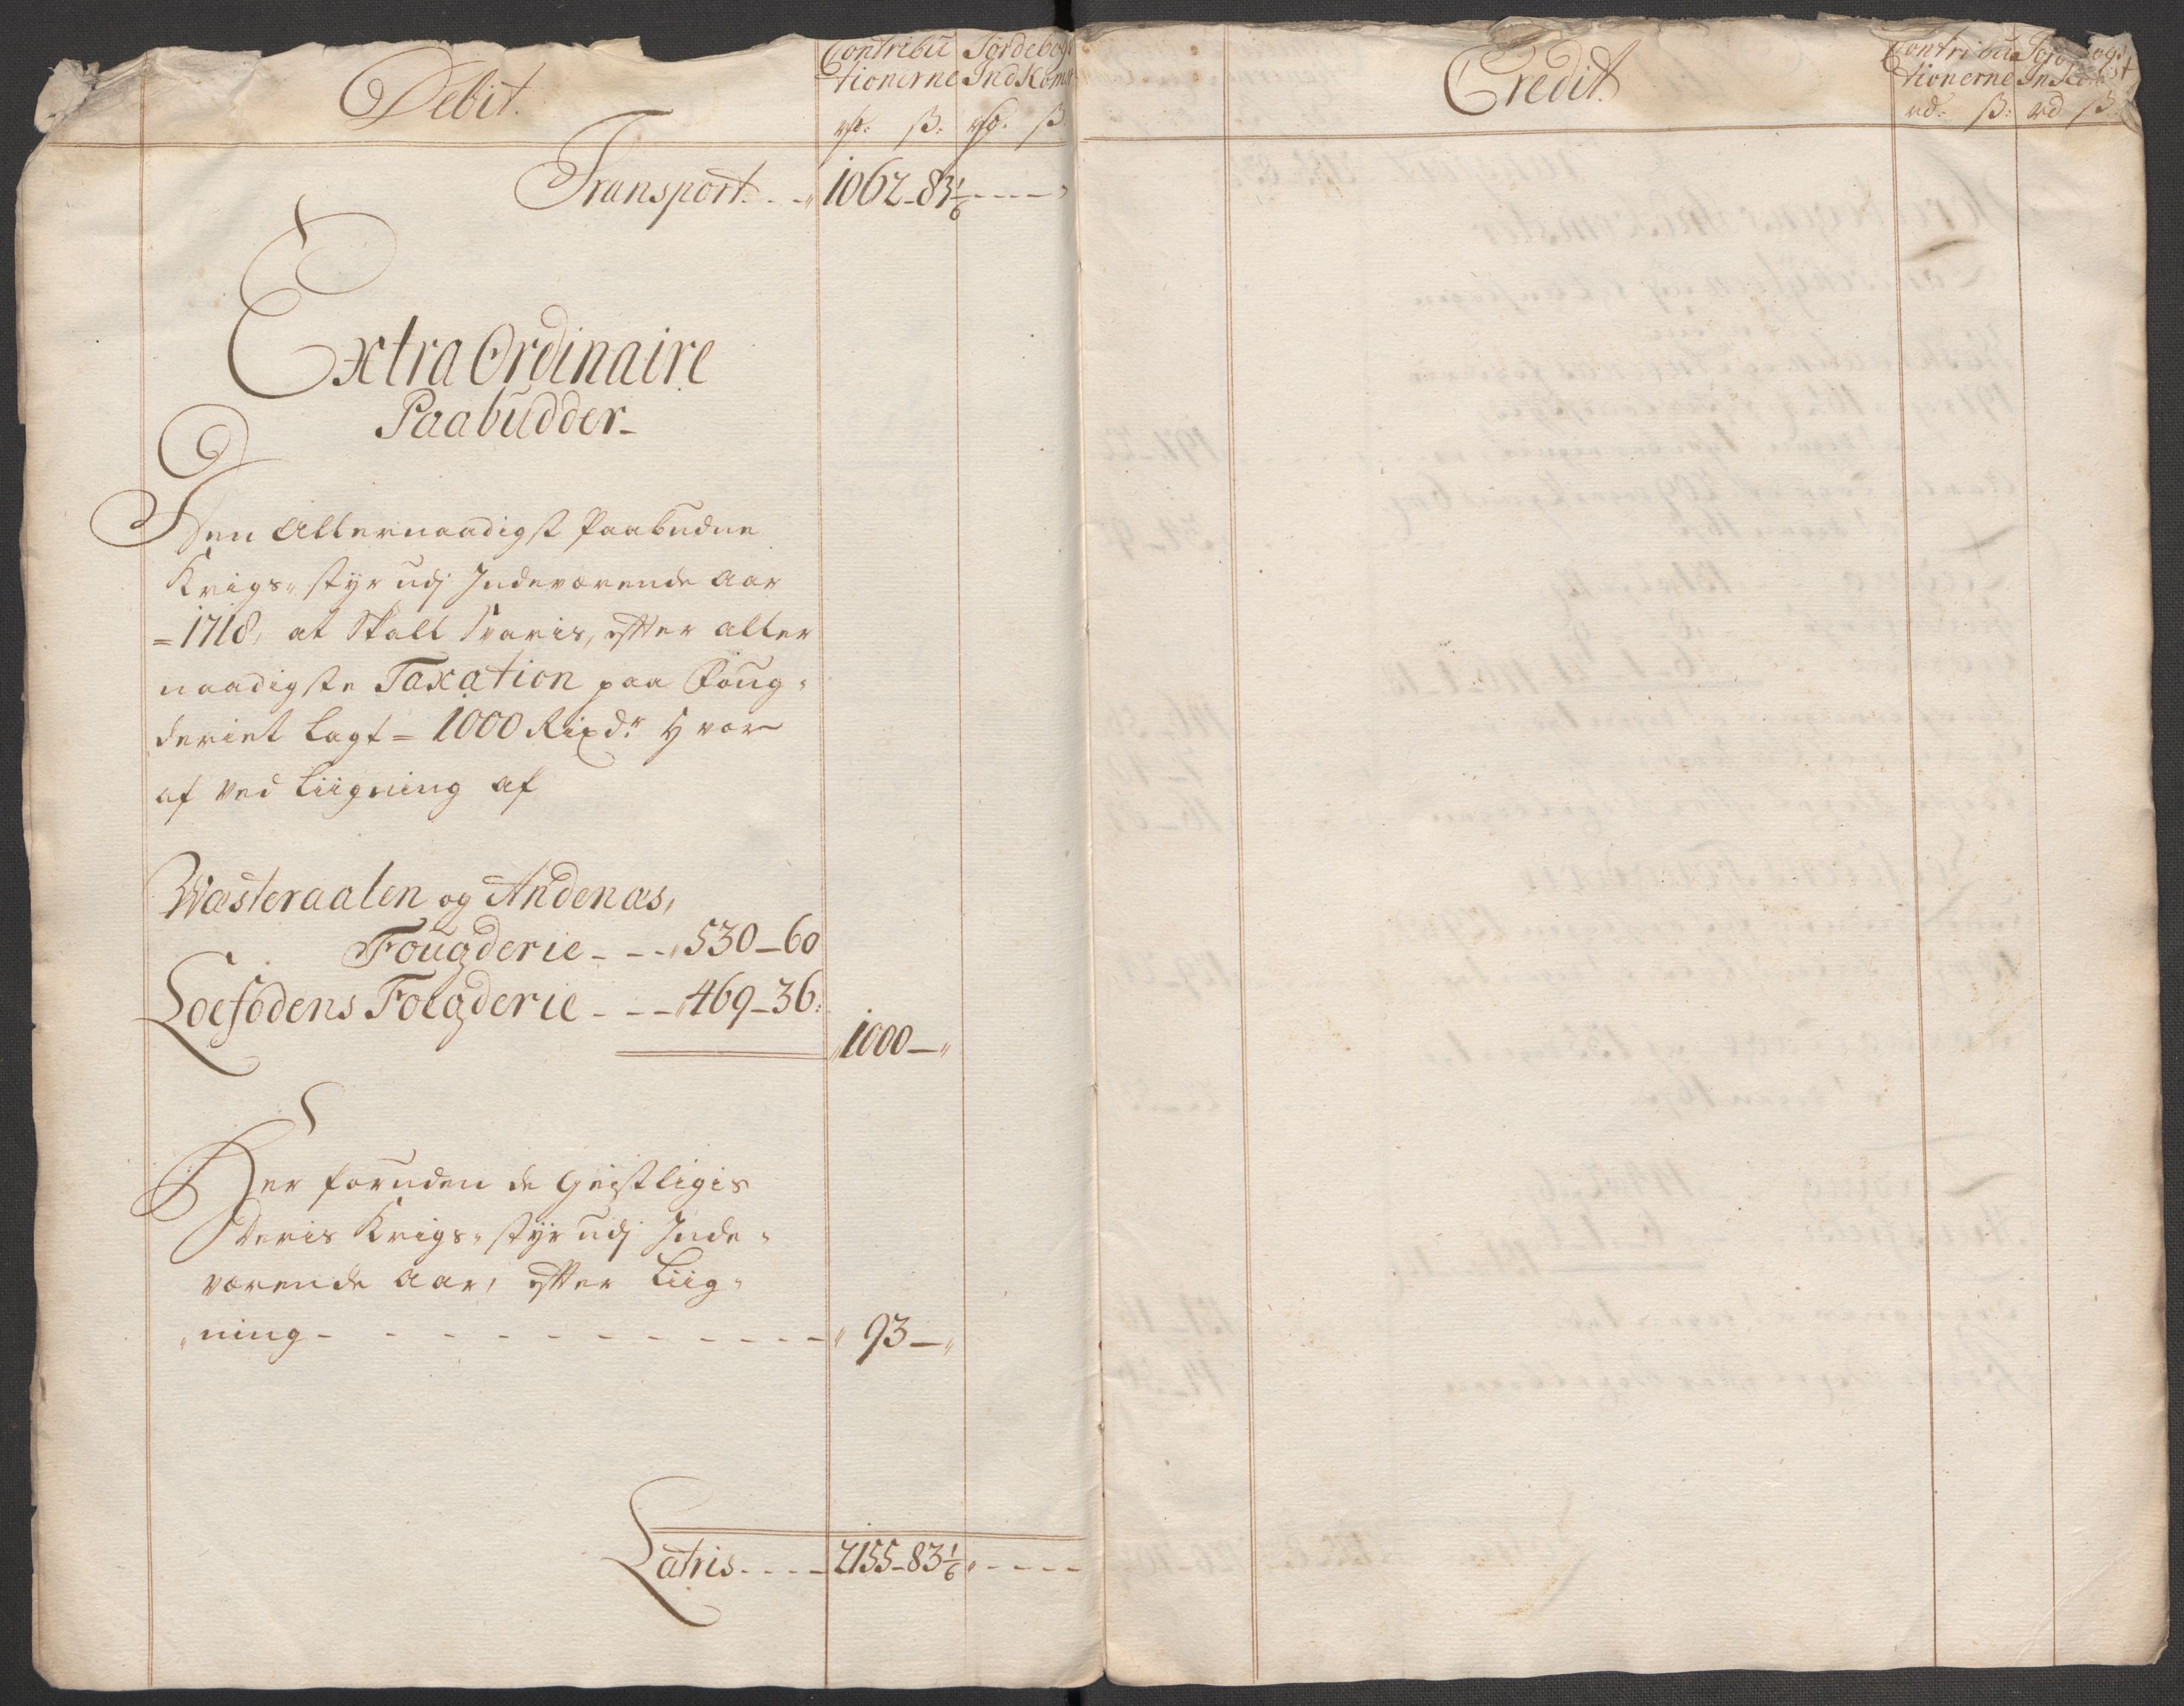 Debit.
Contribu Jordebogs
tionerne IndKomst
rd. ß. rd. ß
Transport. . . 1062-83 1/6 - - - -
Extra Ordinaire
Paabudder-
Den Allernaadigst Paabudne
Krigs-styr udj Indeværende Aar
=1718, at Skall Svaris, effter aller
naadigste Taxation paa Foug-
deriet lagt = 1000 Rixdr. hvor
af ved Liigning af
Wæsteraalen og Andenæs,
Fougderie - - - 530-60
Loefodens Foegderie - - - 469-36:
1000-"
Her foruden de Geistligis
Deris Krigs-styr udj Inde-
værende Aar, effter Liig-
ning - - - - - - - - - - " 93-"
Latris. - - - 2155-83 1/6 " - - - -
Credit.
Contribu Jordebogs
tionerne IndKomst
rd. ß: rd ß